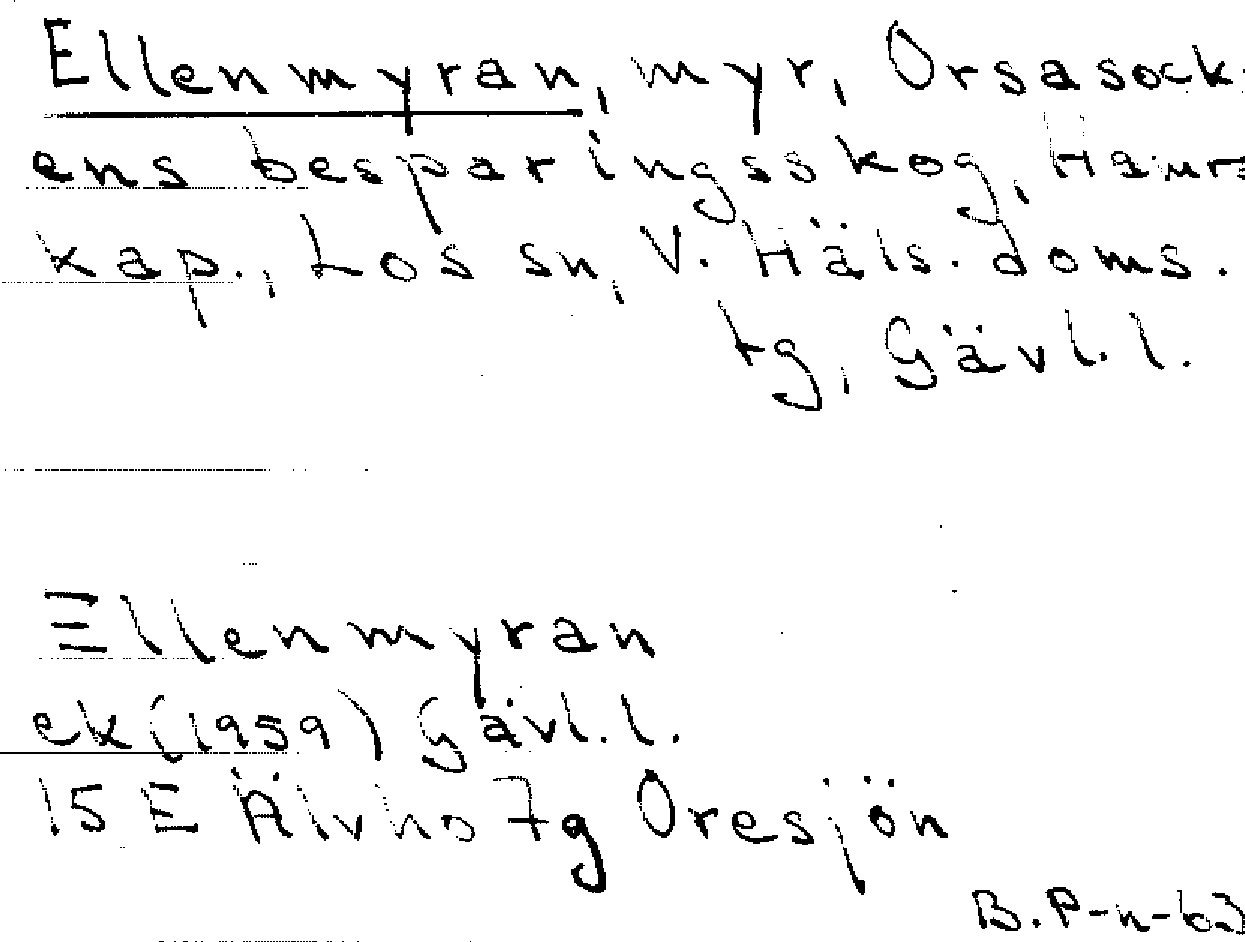 Ellenmyran, myr, Orsasock-
ens besparingsskog, Hamra
kap., Los sn, V. Häls. doms.
tg, Gävl. l.
Ellenmyran
ek (1959) Gävl. l.
15 E Älvho 7g Oresjön
B. P-n-63